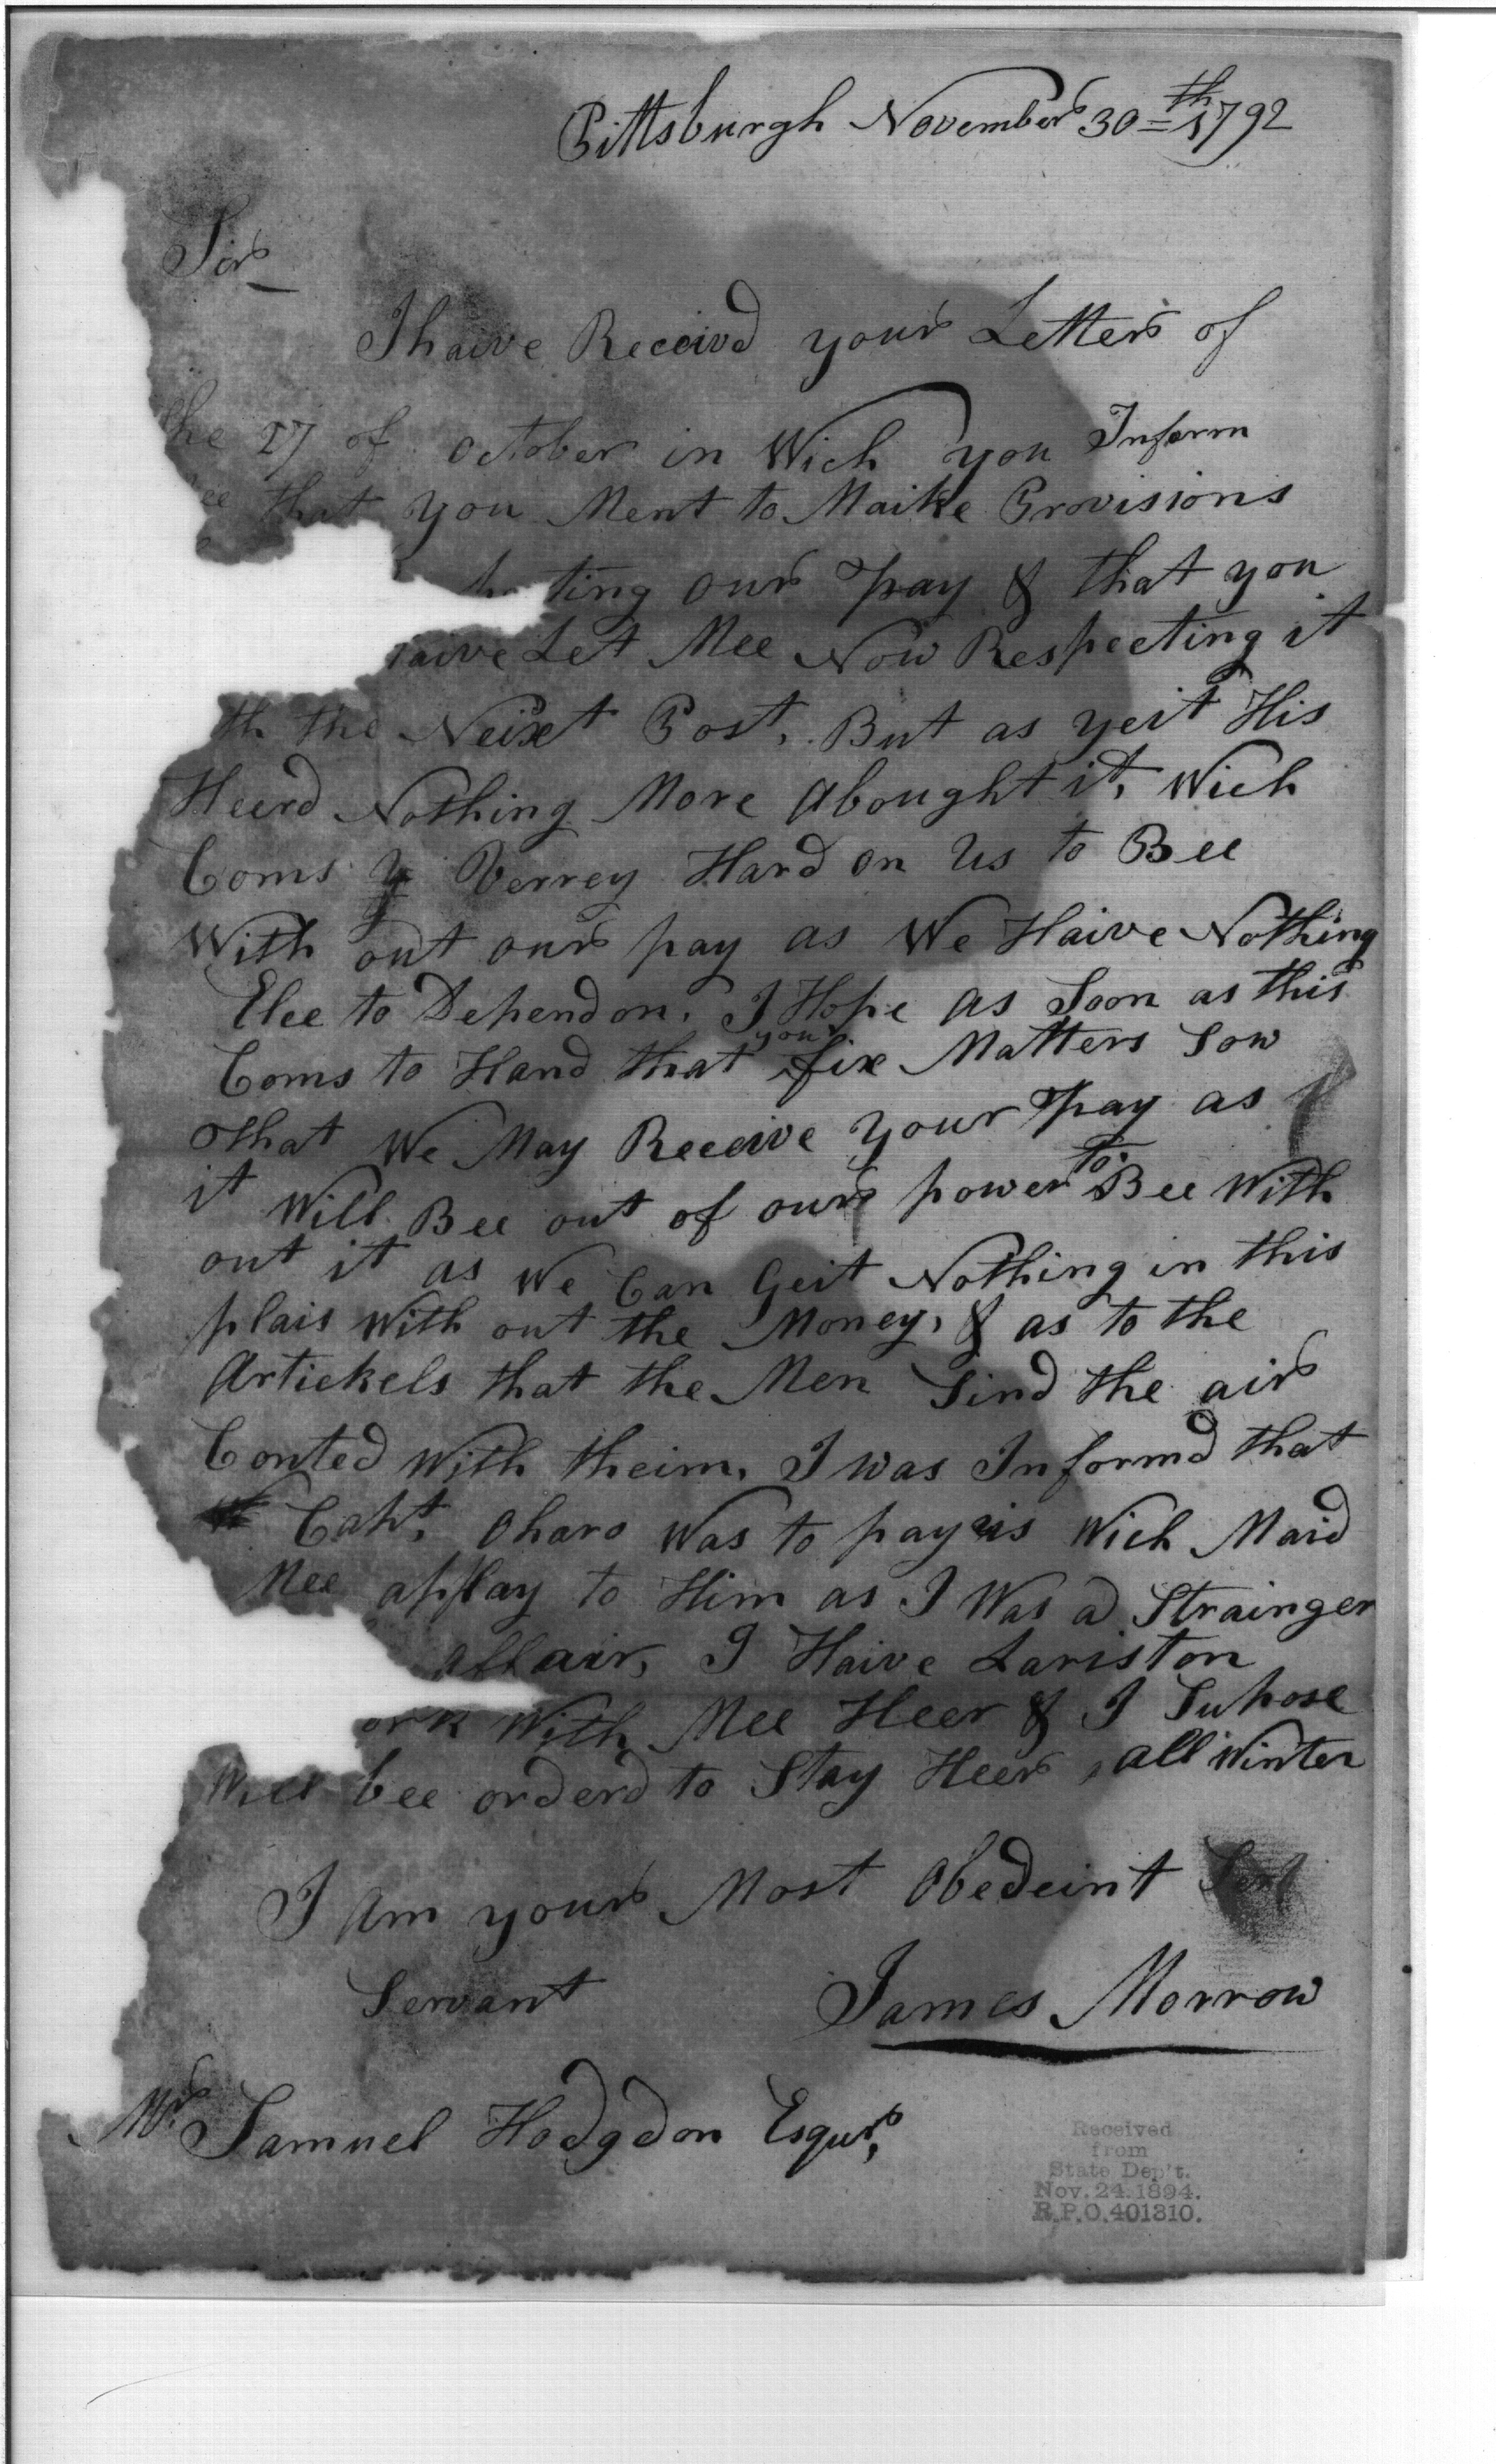 Pittsburgh November 30th 1792
Sir
I haive Receivd your Letter of
the 27 of October in Wich you Inform
that you Ment to Maike Provisions
ting our pay & that you
haive Let Mee Now Respecting it
the Neixt Post, But as yeit His
Heerd Nothing More abought it, Wich
Coms Verrey Hard on Us to Bee
With out our pay as We Haive Nothing
Elce to Depend on. I Hope as Soon as this
Coms to Hand that you fix Matters Sow
that We May Receive Your pay as
it Will Bee out of our power to Bee With
out it as We Can Geit Nothing in this
plais With out the Money, & as to the
Artickels that the Men Sind the air
Conted With theim. I was Informd that
Capt. Oharo Was to pay us Wich Maid
Mee applay to Him as I Was a Strainger
affair, I Haive Lariston
ork With Mee Heer & I Supose
Will bee orderd to Stay Heer all Winter
I Am your Most Obedeint Sert
Servant James Morrow
Mr Samuel Hodgdon Esqur,
Received
from
State Dep't.
Nov. 24. 1894.
R.P.O. 401310.